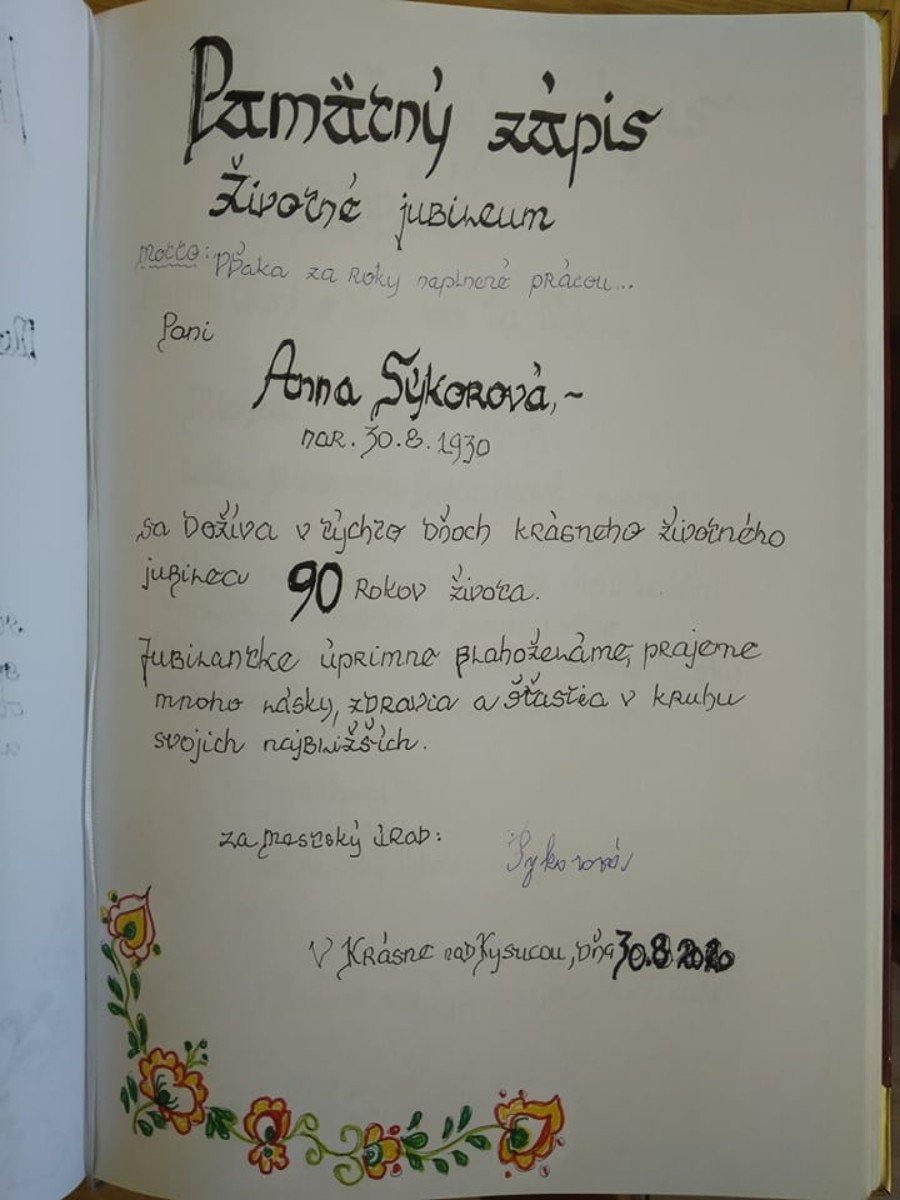 Pamätný zápis
Životné jubileum
Motto: Vďaka za roky naplnené prácou...
Pani
Anna Sýkorová,~
nar. 30.8.1930
sa dožíva v týchto dňoch krásneho životného
jubilea 90 rokov života.
Jubilantke úprimne blahoželáme, prajeme
mnoho lásky, zdravia a šťastia v kruhu
svojich najbližších.
za mestský úrad:
Sykorová
V Krásne nad Kysucou, dňa 30.8 2020